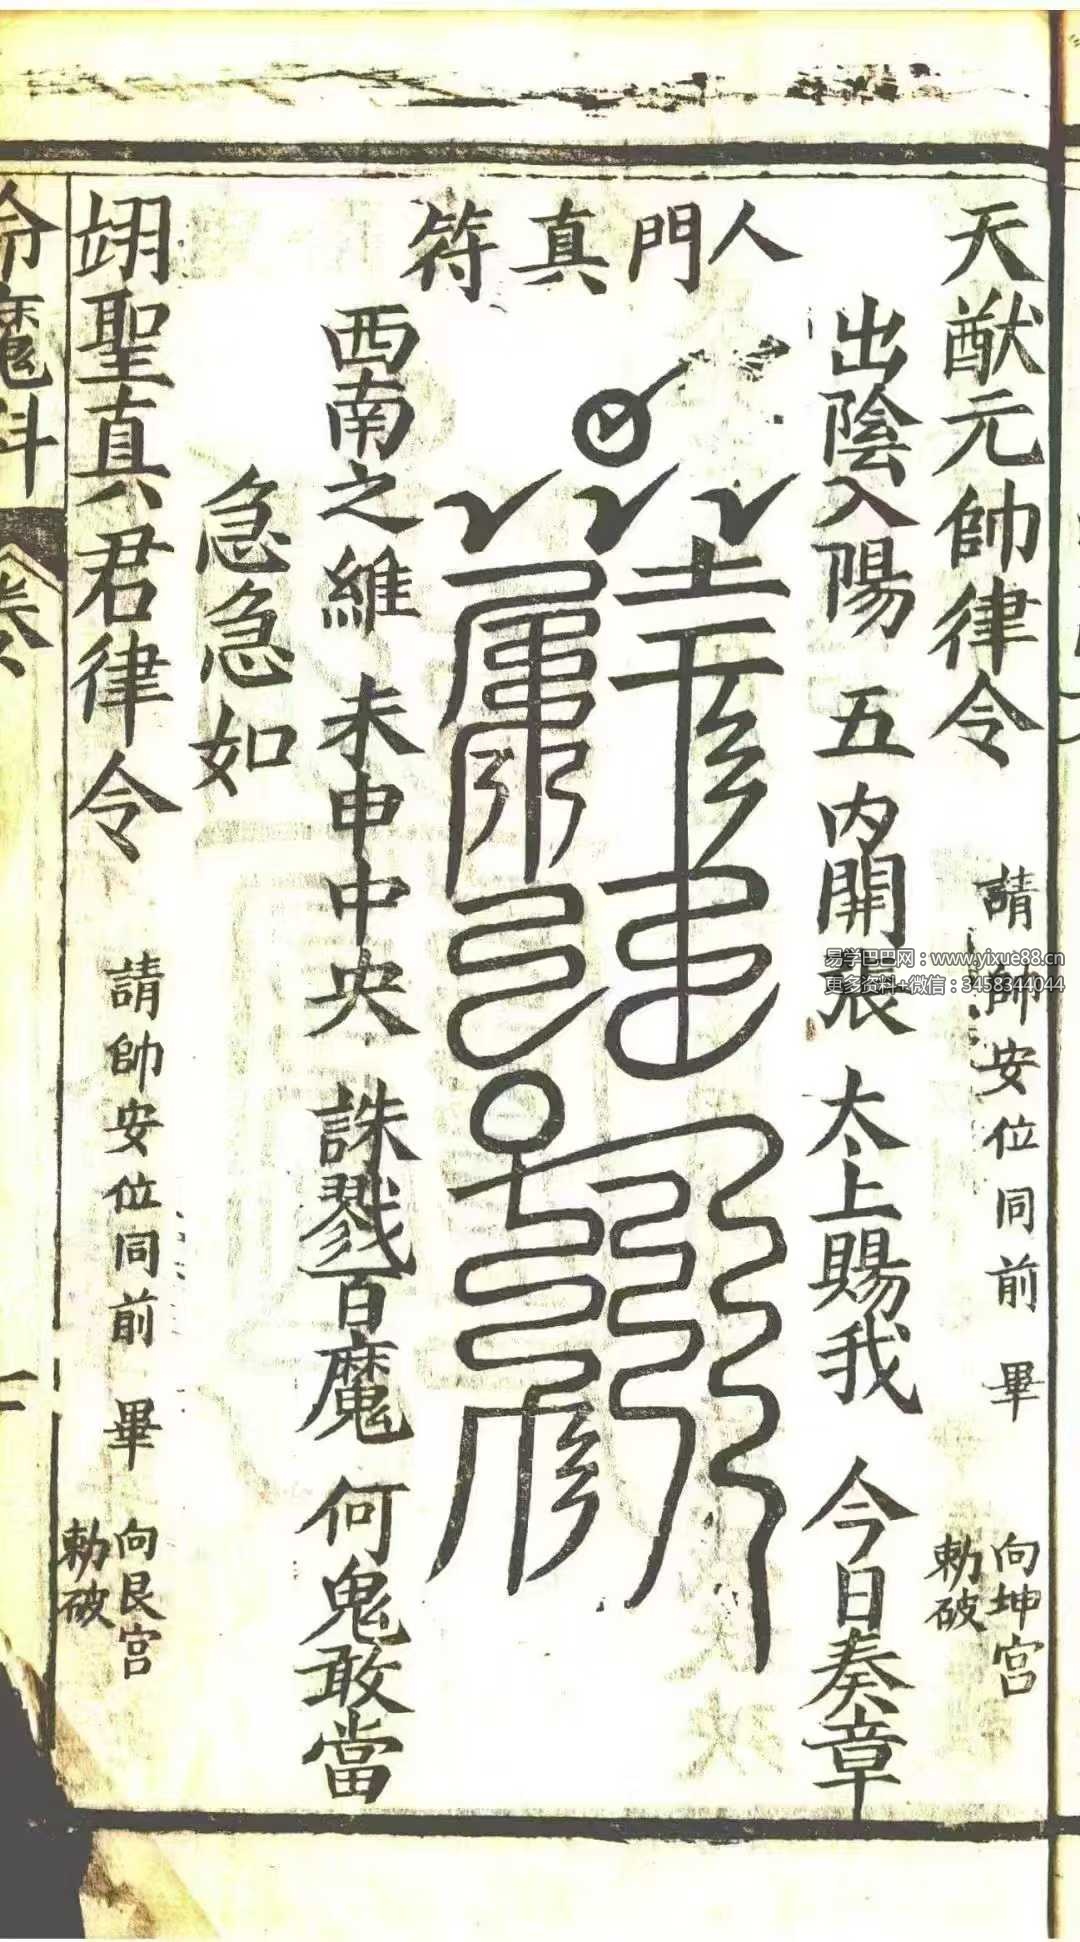 天猷元帥律令 請帥安位同前 畢 向坤宮
勅破
人門真符
出陰入陽 五內開張 太上賜我 今日奏章
西南之維 未申中央 誅戮百魔 何鬼敢當
急急如
翊聖真君律令 請帥安位同前 畢 向艮宮
勅破
魔科 卷
易学巴巴网：www.yixue88.cn
更多资料+微信：3458344044